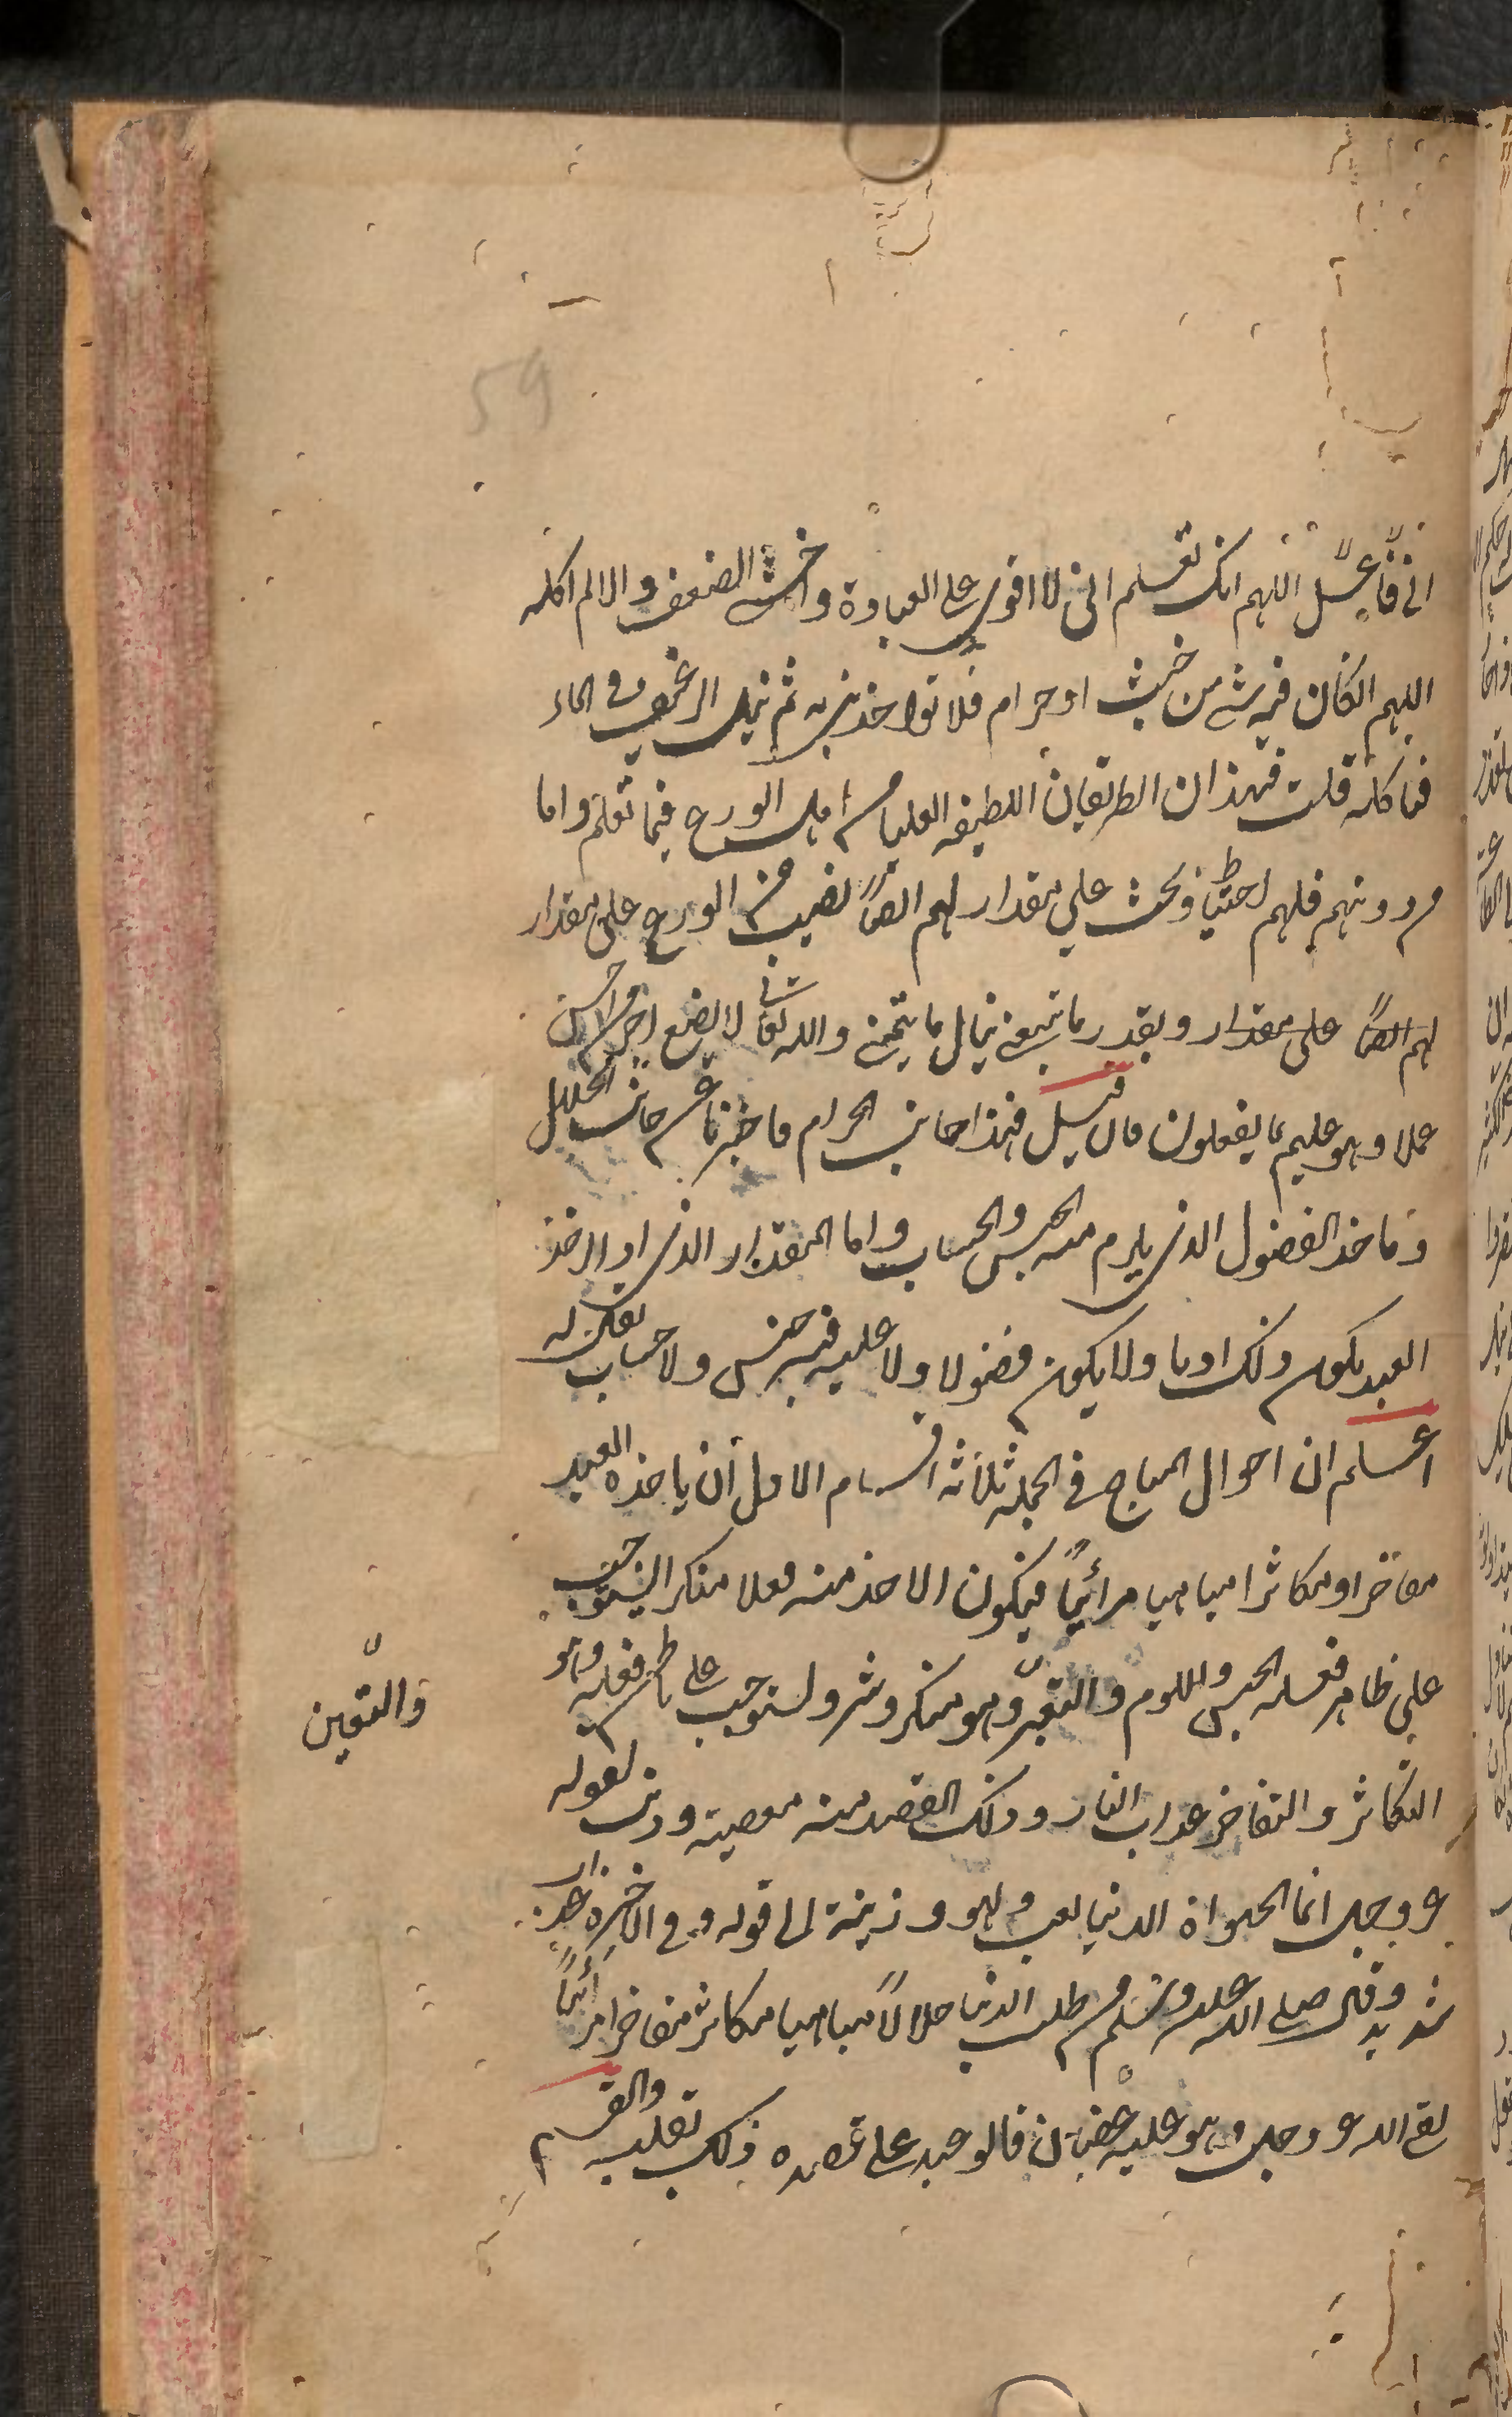 59
اللهم انك تعلم انى لا اقوى على العبادة واخشى الضعف والا لم اكله
اللهم ان كان فيه شئ من خبث او حرام فلا تواخذنى به ثم نيل الرغيف فى الماء
فياكله قلت فهذان الطريقان اللطيفه العليا من اهل الورع فيما نعلم واما
من دونهم فلهم احتياط وبحث على مقدار لهم ايضاً نصيب من الورع على مقدار
لهم ايضاً على مقدار وبقدر ما ينبغى ينال ما يتمنى والله تعالى لا يضيع اجر من احسن
عملا وهو عليم بما يفعلون فان قيل فهذا جانب الحرام فاخبرنا عن جانب الحلال
وما حد الفضول الذى يلزم منه الحبس والحساب واما المقدار الذى اذا اخذ
العبد يكون ذلك ادبا ولا يكون فضولا ولا عليه فيه حبس ولا حساب
اعلم ان احوال المباح فى الجملة ثلاثة اقسام الاول ان ياخذه العبد
مفاخرا ومكاثرا مباهيا مرائياً فيكون الاخذ منه فعلا منكرا
على ظاهر فعله الحبس واللوم والتعيير وهو منكر وشر ويستوجب على باطن فعله وهو
والتعيين
التكاثر والتفاخر عذاب النار وذلك القصد منه معصية وذنب لقوله
عز وجل انما الحيوة الدنيا لعب ولهو وزينة الى قوله وفى الاخرة عذاب
شديد وقال صلى الله عليه وسلم من طلب الدنيا حلالاً مباهيا مكاثرا مفاخرا مرائياً
لقى الله عز وجل وهو عليه غضبان فالوعيد على قصده ذلك بقلبه والقسم